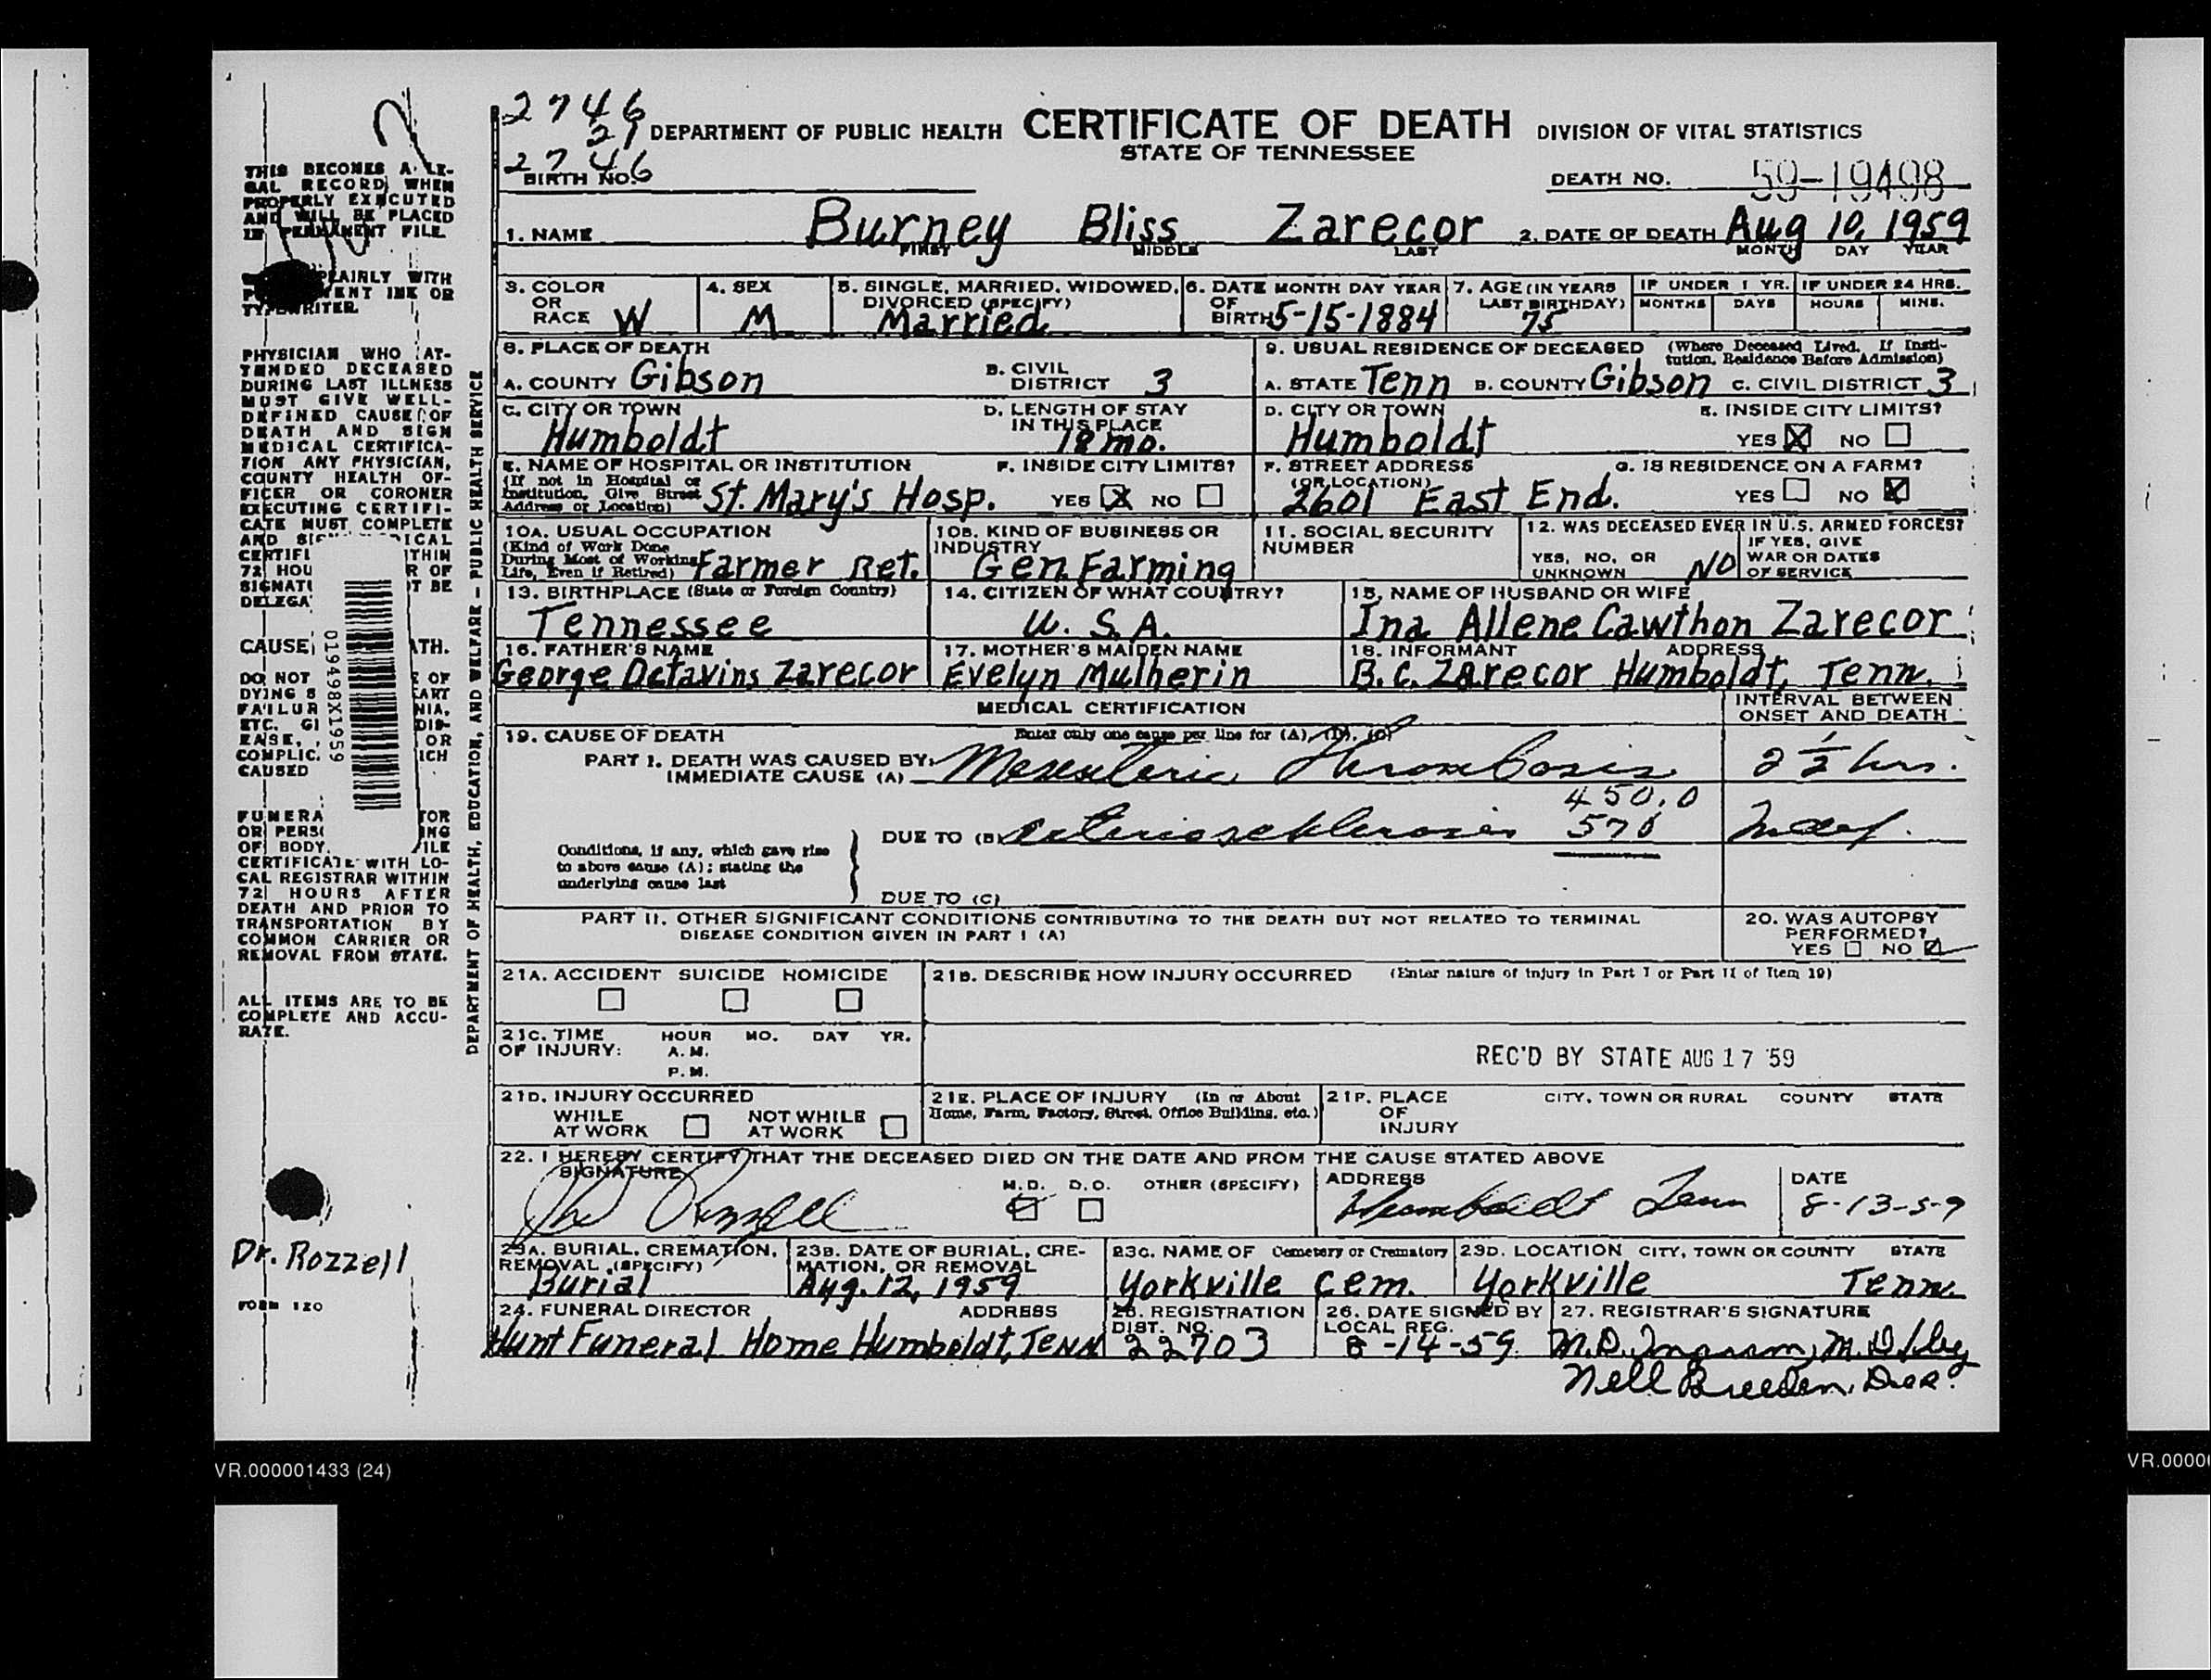 2746
21
DEPARTMENT OF PUBLIC HEALTH CERTIFICATE OF DEATH DIVISION OF VITAL STATISTICS
STATE OF TENNESSEE
2746
BIRTH NO.
DEATH NO. 59-19498
1. NAME Burney Bliss Zarecor 2. DATE OF DEATH Aug 10, 1959
FIRST MIDDLE LAST MONTH DAY YEAR
3. COLOR OR RACE W
4. SEX M
5. SINGLE, MARRIED, WIDOWED, DIVORCED (SPECIFY) Married
6. DATE OF BIRTH MONTH DAY YEAR 5-15-1884
7. AGE (IN YEARS LAST BIRTHDAY) 75
IF UNDER 1 YR. MONTHS DAYS
IF UNDER 24 HRS. HOURS MINS.
8. PLACE OF DEATH
A. COUNTY Gibson B. CIVIL DISTRICT 3
C. CITY OR TOWN Humboldt D. LENGTH OF STAY IN THIS PLACE 18 mo.
E. NAME OF HOSPITAL OR INSTITUTION (If not in Hospital or Institution, Give Street Address or Location) St. Mary's Hosp. F. INSIDE CITY LIMITS? YES X NO
9. USUAL RESIDENCE OF DECEASED (Where Deceased Lived. If Institution, Residence Before Admission)
A. STATE Tenn B. COUNTY Gibson C. CIVIL DISTRICT 3
D. CITY OR TOWN Humboldt E. INSIDE CITY LIMITS? YES X NO
F. STREET ADDRESS (OR LOCATION) 2601 East End. G. IS RESIDENCE ON A FARM? YES NO X
10A. USUAL OCCUPATION (Kind of Work Done During Most of Working Life, Even if Retired) Farmer Ret.
10B. KIND OF BUSINESS OR INDUSTRY Gen Farming
11. SOCIAL SECURITY NUMBER
12. WAS DECEASED EVER IN U.S. ARMED FORCES? YES, NO, OR UNKNOWN NO IF YES, GIVE WAR OR DATES OF SERVICE
13. BIRTHPLACE (State or Foreign Country) Tennessee
14. CITIZEN OF WHAT COUNTRY? U. S. A.
15. NAME OF HUSBAND OR WIFE Ina Allene Cawthon Zarecor
16. FATHER'S NAME George Octavins Zarecor
17. MOTHER'S MAIDEN NAME Evelyn Mulherin
18. INFORMANT ADDRESS B.C. Zarecor Humboldt, Tenn.
MEDICAL CERTIFICATION
INTERVAL BETWEEN ONSET AND DEATH
19. CAUSE OF DEATH Enter only one cause per line for (A), (B), (C)
PART I. DEATH WAS CAUSED BY:
IMMEDIATE CAUSE (A) Mesenteric Thrombosis 2 1/2 hrs.
450.0
570
Conditions, if any, which gave rise to above cause (A); stating the underlying cause last
DUE TO (B) Arteriosclerosis Indef.
DUE TO (C)
PART II. OTHER SIGNIFICANT CONDITIONS CONTRIBUTING TO THE DEATH BUT NOT RELATED TO TERMINAL DISEASE CONDITION GIVEN IN PART I (A)
20. WAS AUTOPSY PERFORMED? YES NO
21A. ACCIDENT SUICIDE HOMICIDE
21B. DESCRIBE HOW INJURY OCCURRED (Enter nature of injury in Part I or Part II of Item 19)
21C. TIME OF INJURY: HOUR MO. DAY YR.
A.M.
P.M.
REC'D BY STATE AUG 17 '59
21D. INJURY OCCURRED
WHILE AT WORK NOT WHILE AT WORK
21E. PLACE OF INJURY (In or About Home, Farm, Factory, Street, Office Building, etc.)
21F. PLACE OF INJURY CITY, TOWN OR RURAL COUNTY STATE
22. I HEREBY CERTIFY THAT THE DECEASED DIED ON THE DATE AND FROM THE CAUSE STATED ABOVE
SIGNATURE Rozzell M.D. D.O. OTHER (SPECIFY)
ADDRESS Humboldt Tenn
DATE 8-13-59
23A. BURIAL, CREMATION, REMOVAL (SPECIFY) Burial
23B. DATE OF BURIAL, CREMATION, OR REMOVAL Aug. 12, 1959
23C. NAME OF Cemetery or Crematory Yorkville Cem.
23D. LOCATION CITY, TOWN OR COUNTY STATE Yorkville Tenn.
24. FUNERAL DIRECTOR ADDRESS Hunt Funeral Home Humboldt, TENN
25. REGISTRATION DIST. NO. 22703
26. DATE SIGNED BY LOCAL REG. 8-14-59
27. REGISTRAR'S SIGNATURE M.D. Ingram, M.D/by
Nell Breeden, Dep.
THIS BECOMES A LE-
GAL RECORD WHEN
PROPERLY EXECUTED
AND WILL BE PLACED
IN PERMANENT FILE.
PLAINLY WITH
INK OR
TYPEWRITER.
PHYSICIAN WHO AT-
TENDED DECEASED
DURING LAST ILLNESS
MUST GIVE WELL-
DEFINED CAUSE OF
DEATH AND SIGN
MEDICAL CERTIFICA-
TION ANY PHYSICIAN,
COUNTY HEALTH OF-
FICER OR CORONER
EXECUTING CERTIFI-
CATE MUST COMPLETE
AND
72 HOU
CAUSE
DO NOT
DYING
CAUSED
019498X1959
OF BODY
CERTIFICATE WITH LO-
CAL REGISTRAR WITHIN
72 HOURS AFTER
DEATH AND PRIOR TO
TRANSPORTATION BY
COMMON CARRIER OR
REMOVAL FROM STATE.
ALL ITEMS ARE TO BE
COMPLETE AND ACCU-
RATE.
DEPARTMENT OF HEALTH, EDUCATION, AND WELFARE - PUBLIC HEALTH SERVICE
Dr. Rozzell
FORM 120
VR.000001433 (24)
VR.0000